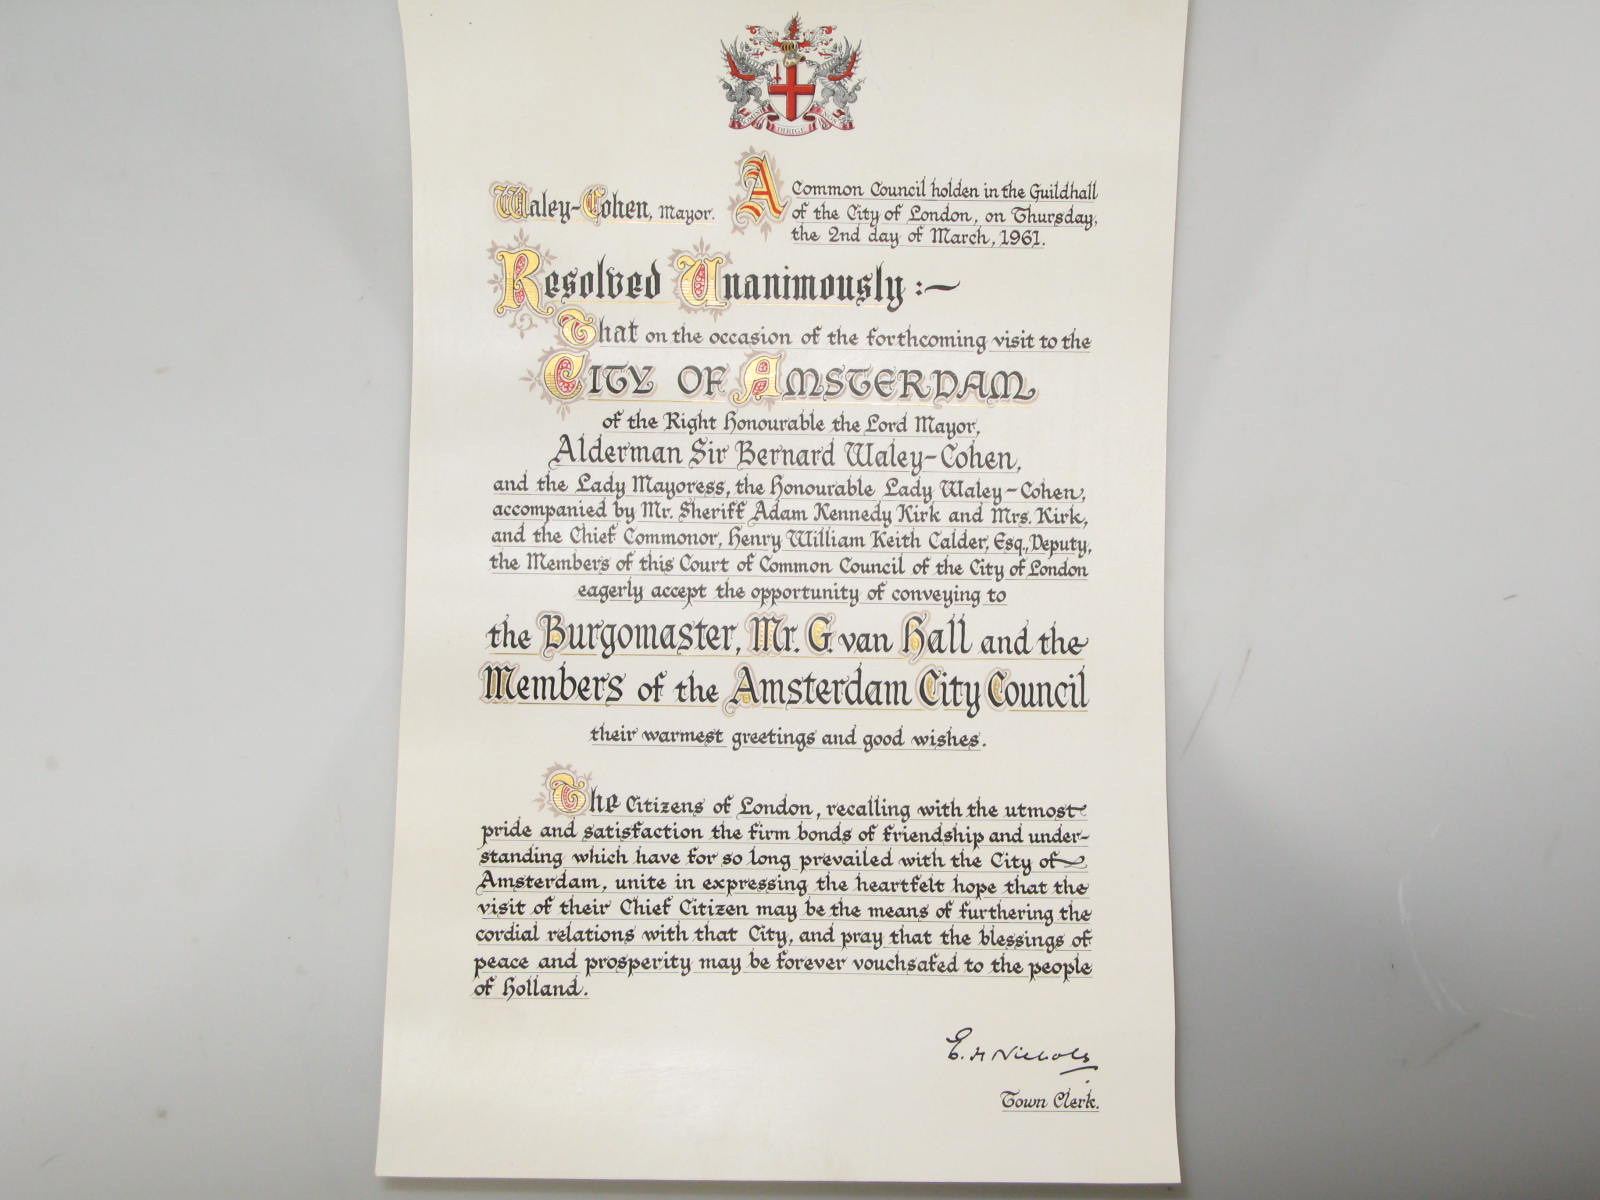 DOMINE DIRIGE NOS
Waley-Cohen, Mayor.
A Common Council holden in the Guildhall
of the City of London, on Thursday,
the 2nd day of March, 1961.
Resolved Unanimously :—
That on the occasion of the forthcoming visit to the
CITY OF AMSTERDAM
of the Right Honourable the Lord Mayor,
Alderman Sir Bernard Waley-Cohen,
and the Lady Mayoress, the Honourable Lady Waley-Cohen,
accompanied by Mr. Sheriff Adam Kennedy Kirk and Mrs. Kirk,
and the Chief Commonor, Henry William Keith Calder, Esq., Deputy,
the Members of this Court of Common Council of the City of London
eagerly accept the opportunity of conveying to
the Burgomaster, Mr. G. van Hall and the
Members of the Amsterdam City Council
their warmest greetings and good wishes.
The Citizens of London, recalling with the utmost
pride and satisfaction the firm bonds of friendship and under-
standing which have for so long prevailed with the City of
Amsterdam, unite in expressing the heartfelt hope that the
visit of their Chief Citizen may be the means of furthering the
cordial relations with that City, and pray that the blessings of
peace and prosperity may be forever vouchsafed to the people
of Holland.
E. H Nichols
Town Clerk.